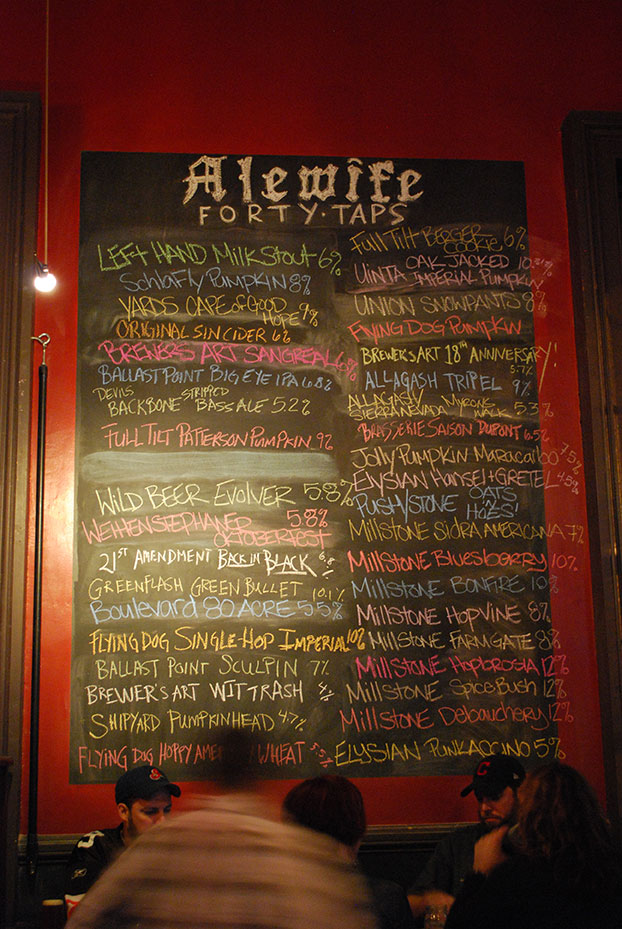 Alewife
FORTY · TAPS
LEFT HAND Milk Stout 6%
Schlafly Pumpkin 8%
YARDS CAPE of GOOD
HOPE 9%
ORIGINAL SIN CIDER 6%
BREWER'S ART SANGREAL 6%
BALLAST POINT BIG EYE IPA 6.8%
DEVILS STRIPPED
BACKBONE BASS ALE 5.2%
FULL TILT PATTERSON PUMPKIN 9%
WILD BEER EVOLVER 5.8%
WEIHENSTEPHANER 5.8%
OKTOBERFEST
21ST AMENDMENT BACK IN BLACK 6.8%
GREENFLASH GREEN BULLET 10.1%
Boulevard 80 ACRE 5.5%
FLYING DOG SINGLE-HOP IMPERIAL 10%
BALLAST POINT SCULPIN 7%
BREWER'S ART WIT TRASH
SHIPYARD PUMPKINHEAD 4.7%
FLYING DOG HOPPY WHEAT
FULL TILT BERGER
COOKIE 6%
OAK JACKED
UINTA IMPERIAL PUMPKIN
UNION SNOWPANTS 8%
FLYING DOG PUMPKIN
BREWER'S ART 18TH ANNIVERSARY!
5.7%
ALLAGASH TRIPEL 9%
ALLAGASH
SIERRA NEVADA WALK 5.3%
BRASSERIE SAISON DUPONT 6.5%
Jolly Pumpkin Maracaiboo 7.5%
ELYSIAN Hansel + GRETEL 4.5%
PUSH/STONE OATS
HOES'
Millstone Sidra Americana 7%
Millstone Bluesberry 10%
Millstone BONFIRE 10%
Millstone HopVine 8%
Millstone FARMGATE 8%
Millstone Hopbrosia 12%
Millstone SpiceBush 12%
Millstone Debauchery 12%
ELYSIAN PUNKACCINO 5%